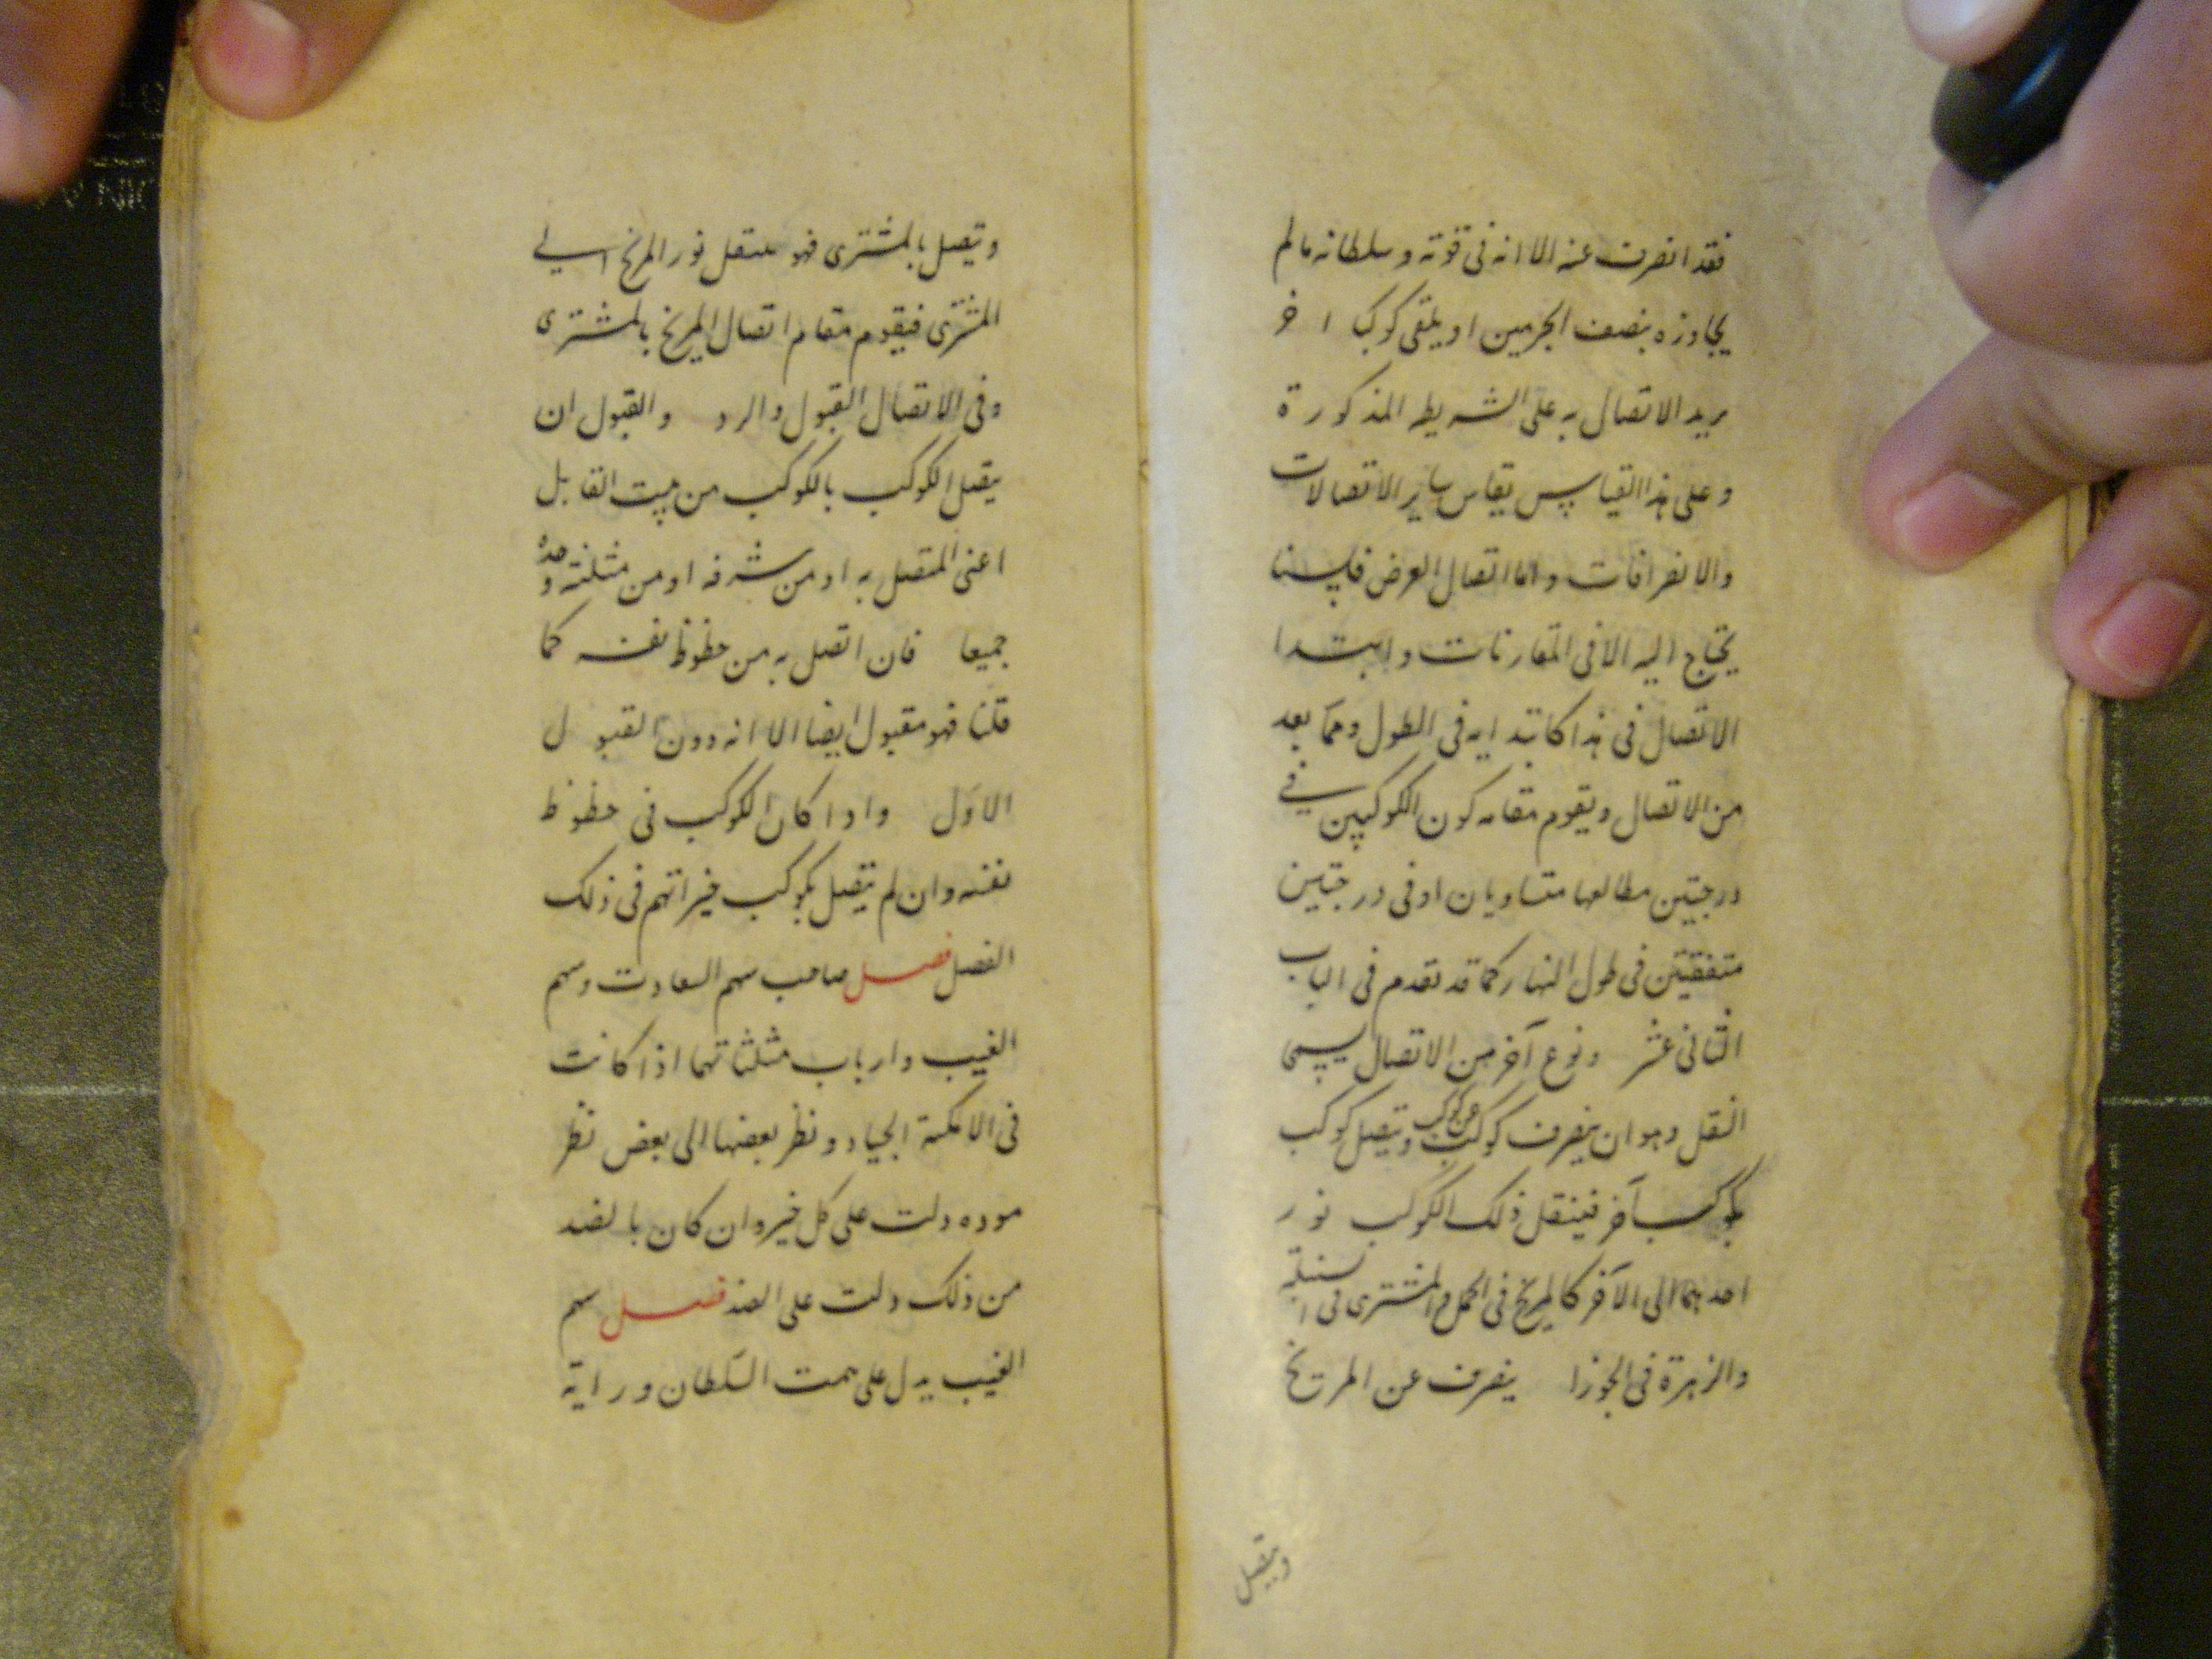 فقد انصرف عنه الا انه فى قوته و سلطانه مالم
يجاوزه بنصف الجرمين او يلقى كوكبا اخر
يريد الاتصال به على الشريطه المذكورة
و على هذا القياس يقاس ساير الاتصالات
والانصرافات و اما اتصال العرض فليسنا
يحتاج اليه الا فى المقارنات و ابتدا
الاتصال فى هذا كابتدايه فى الطول و مما بعد
من الاتصال و يقوم مقامه كون الكوكبين في
درجتين مطالعها متساويان او فى درجتين
متفقتين فى طول النهار كما قد تقدم فى الباب
الثانى عشر و نوع آخر من الاتصال يسمى
النقل و هو ان ينصرف كوكب عن كوكب و يتصل كوكب
بكوكب آخر فينقل ذلك الكوكب نور
احدهما الى الآخر كالمريخ فى الحمل و المشترى فى السنبلة
والزهرة فى الجوزا ينصرف عن المريخ
ويتصل
و يتصل بالمشترى فهو ينقل نور المريخ الي
المشترى فيقوم مقام اتصال المريخ بالمشترى
و فى الاتصال القبول و الرد و القبول ان
يتصل الكوكب بالكوكب من بيت القابل
اعنى المتصل به او من شرفه او من مثلثته و حده
جميعا فان اتصل به من حظوظ نفسه كما
قلنا فهو مقبول ايضا الا انه دون القبول
الاول و اذا كان الكوكب فى حظوظ
نفسه و ان لم يتصل بكوكب خير اتهم فى ذلك
الفصل فصل صاحب سهم السعادت و سهم
الغيب و ارباب مثلثاتهما اذا كانت
فى الامكنة الجياد و نظر بعضها الى بعض نظر
موده دلت على كل خير و ان كان بالضد
من ذلك دلت على الضد فصل سهم
الغيب يدل على همت السلطان و رايه